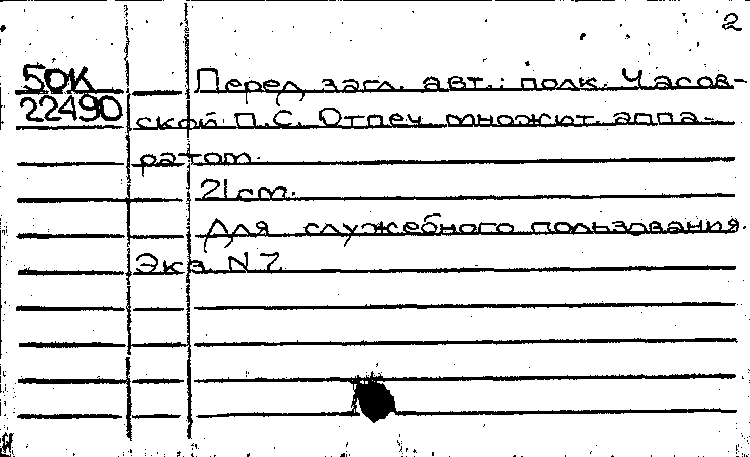 2
50К Перед загл. авт.: полк. Часов-
22490 ский П.С. Отпеч. множит. аппа-
ратом.
21 см.
Для служебного пользования.
Экз. N 7.